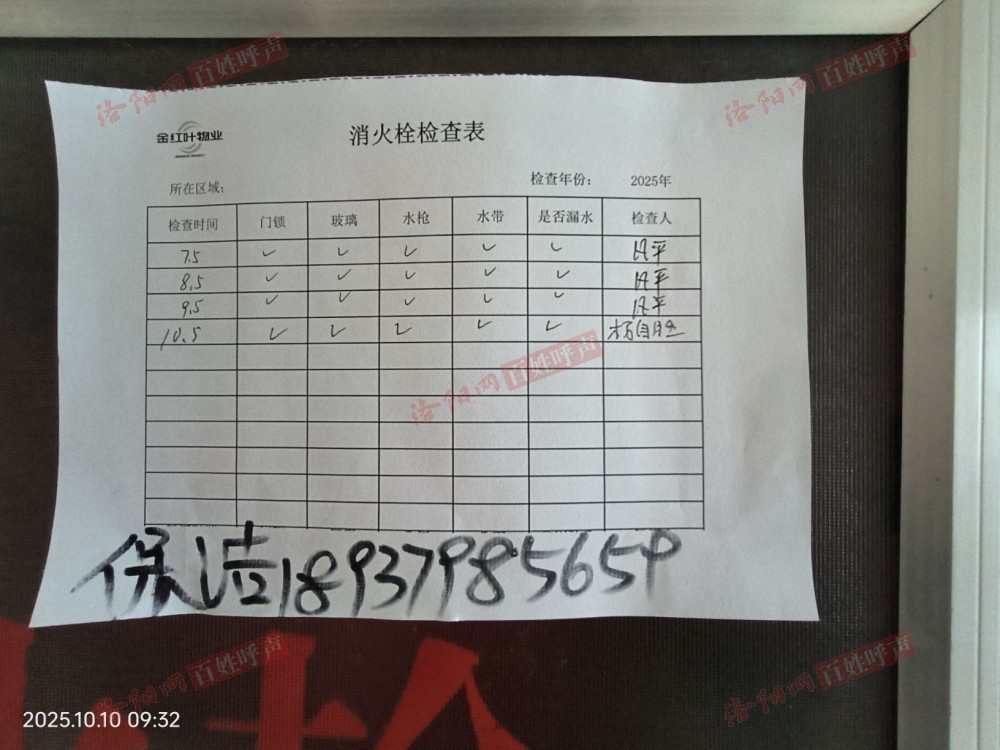 洛阳网 百姓呼声
洛阳网 百姓呼声
金红叶物业
消火栓检查表
所在区域： 检查年份： 2025年
检查时间 门锁 玻璃 水枪 水带 是否漏水 检查人
7.5 ✓ ✓ ✓ ✓ ✓
8.5 ✓ ✓ ✓ ✓ ✓
9.5 ✓ ✓ ✓ ✓ ✓
10.5 ✓ ✓ ✓ ✓ ✓
洛阳网 百姓呼声
保洁18937985659
洛阳网 百姓呼声
洛阳网 百姓呼声
2025.10.10 09:32